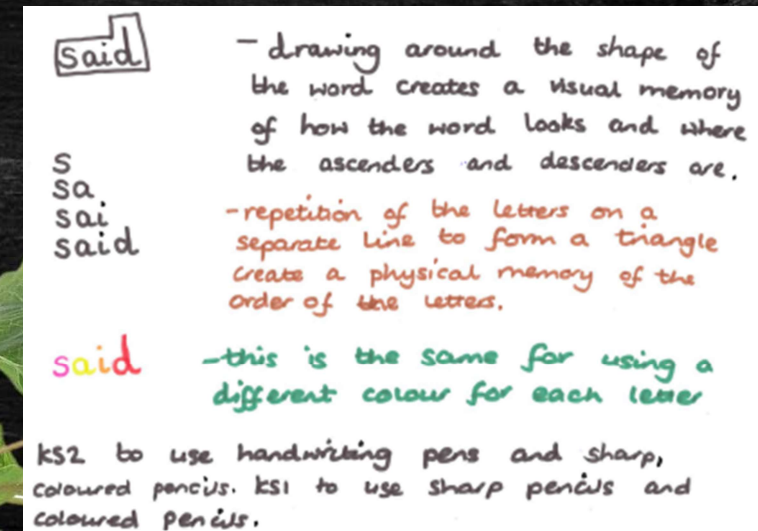 said
- drawing around the shape of
the word creates a visual memory
of how the word looks and where
the ascenders and descenders are.
s
sa
sai
said
- repetition of the letters on a
separate line to form a triangle
create a physical memory of the
order of the letters.
said
- this is the same for using a
different colour for each letter
KS2 to use handwriting pens and sharp,
coloured pencils. KS1 to use sharp pencils and
coloured pencils.